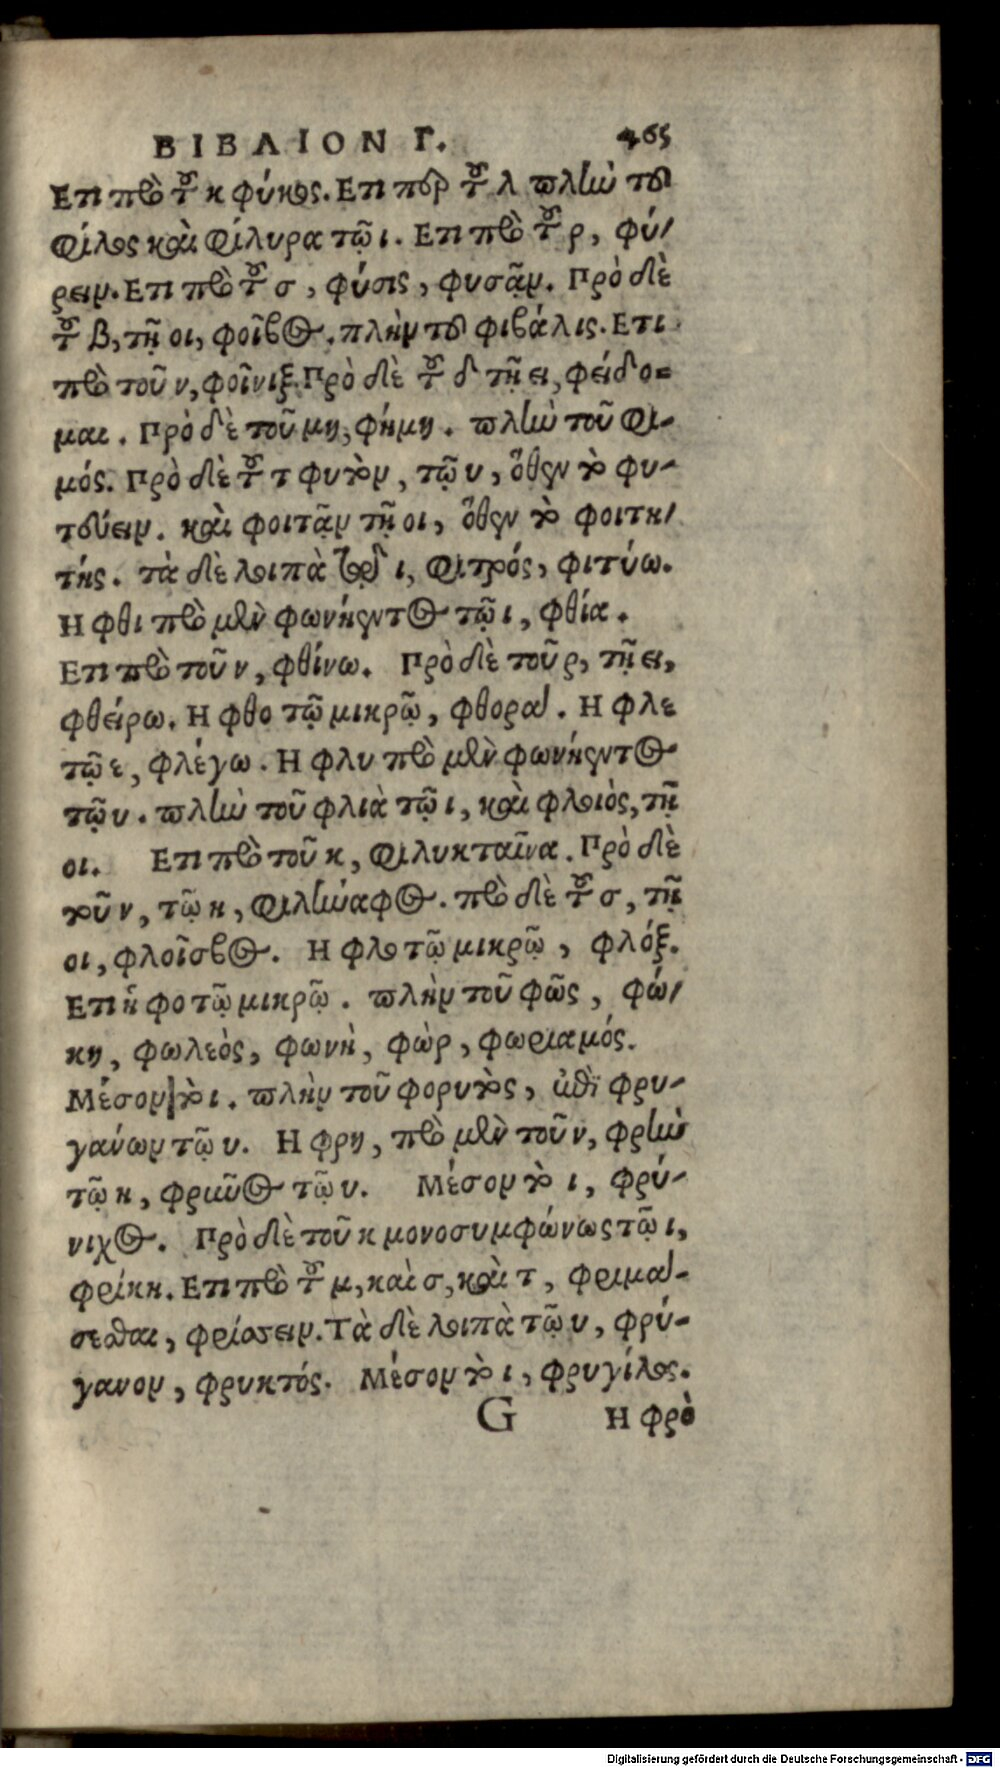 ΒΙΒΛΙΟΝ Γ. 465
Ετι πρὸ τοῦ κ φύκος. Ετι πρὸ τοῦ λ πλὴν τοῦ
φίλος καὶ φίλυρα τῷ ι. Ετι πρὸ τοῦ ρ, φύ/
ρειν. Ετι πρὸ τοῦ σ, φύσις, φυσᾷν. Πρὸ δὲ
τοῦ β, τῇ οι, φοῖβος. πλὴν τοῦ φιβάλις. Ετι
πρὸ τοῦ ν, φοῖνιξ. Πρὸ δὲ τοῦ δ τῇ ει, φείδο=
μαι. Πρὸ δὲ τοῦ μη, φήμη. πλὴν τοῦ φι-
μός. Πρὸ δὲ τοῦ τ φυτὸν, τῷ υ, ὅθεν τὸ φυ-
τεύειν. καὶ φοιτᾷν τῇ οι, ὅθεν τὸ φοιτη/
τής. τὰ δὲ λοιπὰ διὰ τοῦ ι, φιτρός, φιτύω.
Η φθι πρὸ μὲν φωνήεντος τῷ ι, φθία.
Ετι πρὸ τοῦ ν, φθίνω. Πρὸ δὲ τοῦ ρ, τῇ ει,
φθείρω. Η φθο τῷ μικρῷ, φθορά. Η φλε
τῷ ε, φλέγω. Η φλυ πρὸ μὲν φωνήεντος
τῷ υ. πλὴν τοῦ φλιὰ τῷ ι, καὶ φλοιὸς, τῇ
οι. Ετι πρὸ τοῦ κ, φλυκταῖνα. Πρὸ δὲ
τοῦ ν, τῷ η, φλήναφος. πρὸ δὲ τοῦ σ, τῇ
οι, φλοῖσβος. Η φλο τῷ μικρῷ, φλόξ.
Ετι ἡ φο τῷ μικρῷ. πλὴν τοῦ φῶς, φώ/
κη, φωλεὸς, φωνὴ, φὼρ, φωριαμός.
Μέσον τὸ ι. πλὴν τοῦ φορυτὸς, φρυ-
γανίων τῷ υ. Η φρη, πρὸ μὲν τοῦ ν, φρὴν
τῷ η, φρῦνος τῷ υ. Μέσον τὸ ι, φρύ-
νιχος. Πρὸ δὲ τοῦ κ μονοσυμφώνως τῷ ι,
φρίκη. Ετι πρὸ τοῦ μ, καὶ σ, καὶ τ, φριμά-
σεσθαι, φρίσσειν. Τὰ δὲ λοιπὰ τῷ υ, φρύ-
γανον, φρυκτός. Μέσον τὸ ι, φρυγίλος.
G Η φρὸ
Digitalisierung gefördert durch die Deutsche Forschungsgemeinschaft - DFG